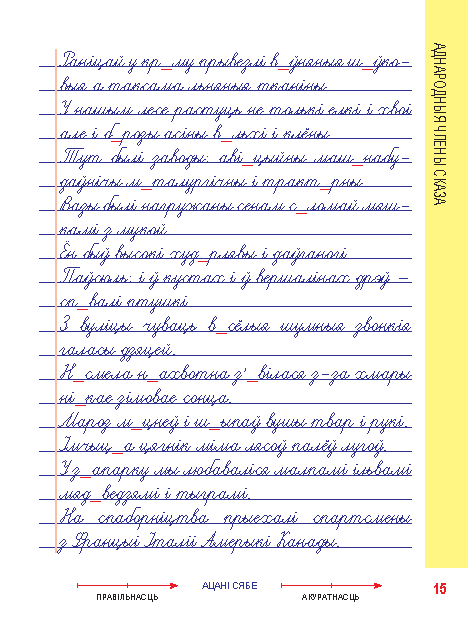 Раніцай у кр_му прывезлі в_ўняныя ш_ўко-
выя а таксама льняныя тканіны
У нашым лесе растуць не толькі елкі і хвоі
але і б_розы асіны в_льхі і клёны
Тут былі заводы: аві_цыйны маш_набу-
даўнічы м_талургічны і тракт_рны
Вазы былі нагружаны сенам с_ломай мяш-
камі з мукой
Ён быў высокі худ_рлявы і даўганогі
Паўсюль: і ў кустах і ў вершалінах дрэў -
сп_валі птушкі
З вуліцы чуваць в_сёлыя шумныя звонкія
галасы дзяцей.
Н_смела н_ахвотна з'_вілася з-за хмары
ні_кае зімовае сонца.
Мароз м_цнеў і ш_ыпаў вушы твар і рукі.
Імчыц_а цягнік міма лясоў палёў лугоў.
У з_апарку мы любаваліся малпамі ільвамі
мяд_ведзямі і тыграмі.
На спаборніцтва прыехалі спартсмены
з Францыі Італіі Амерыкі Канады.
АДНАРОДНЫЯ ЧЛЕНЫ СКАЗА
АЦАНІ СЯБЕ
ПРАВІЛЬНАСЦЬ
АКУРАТНАСЦЬ
15